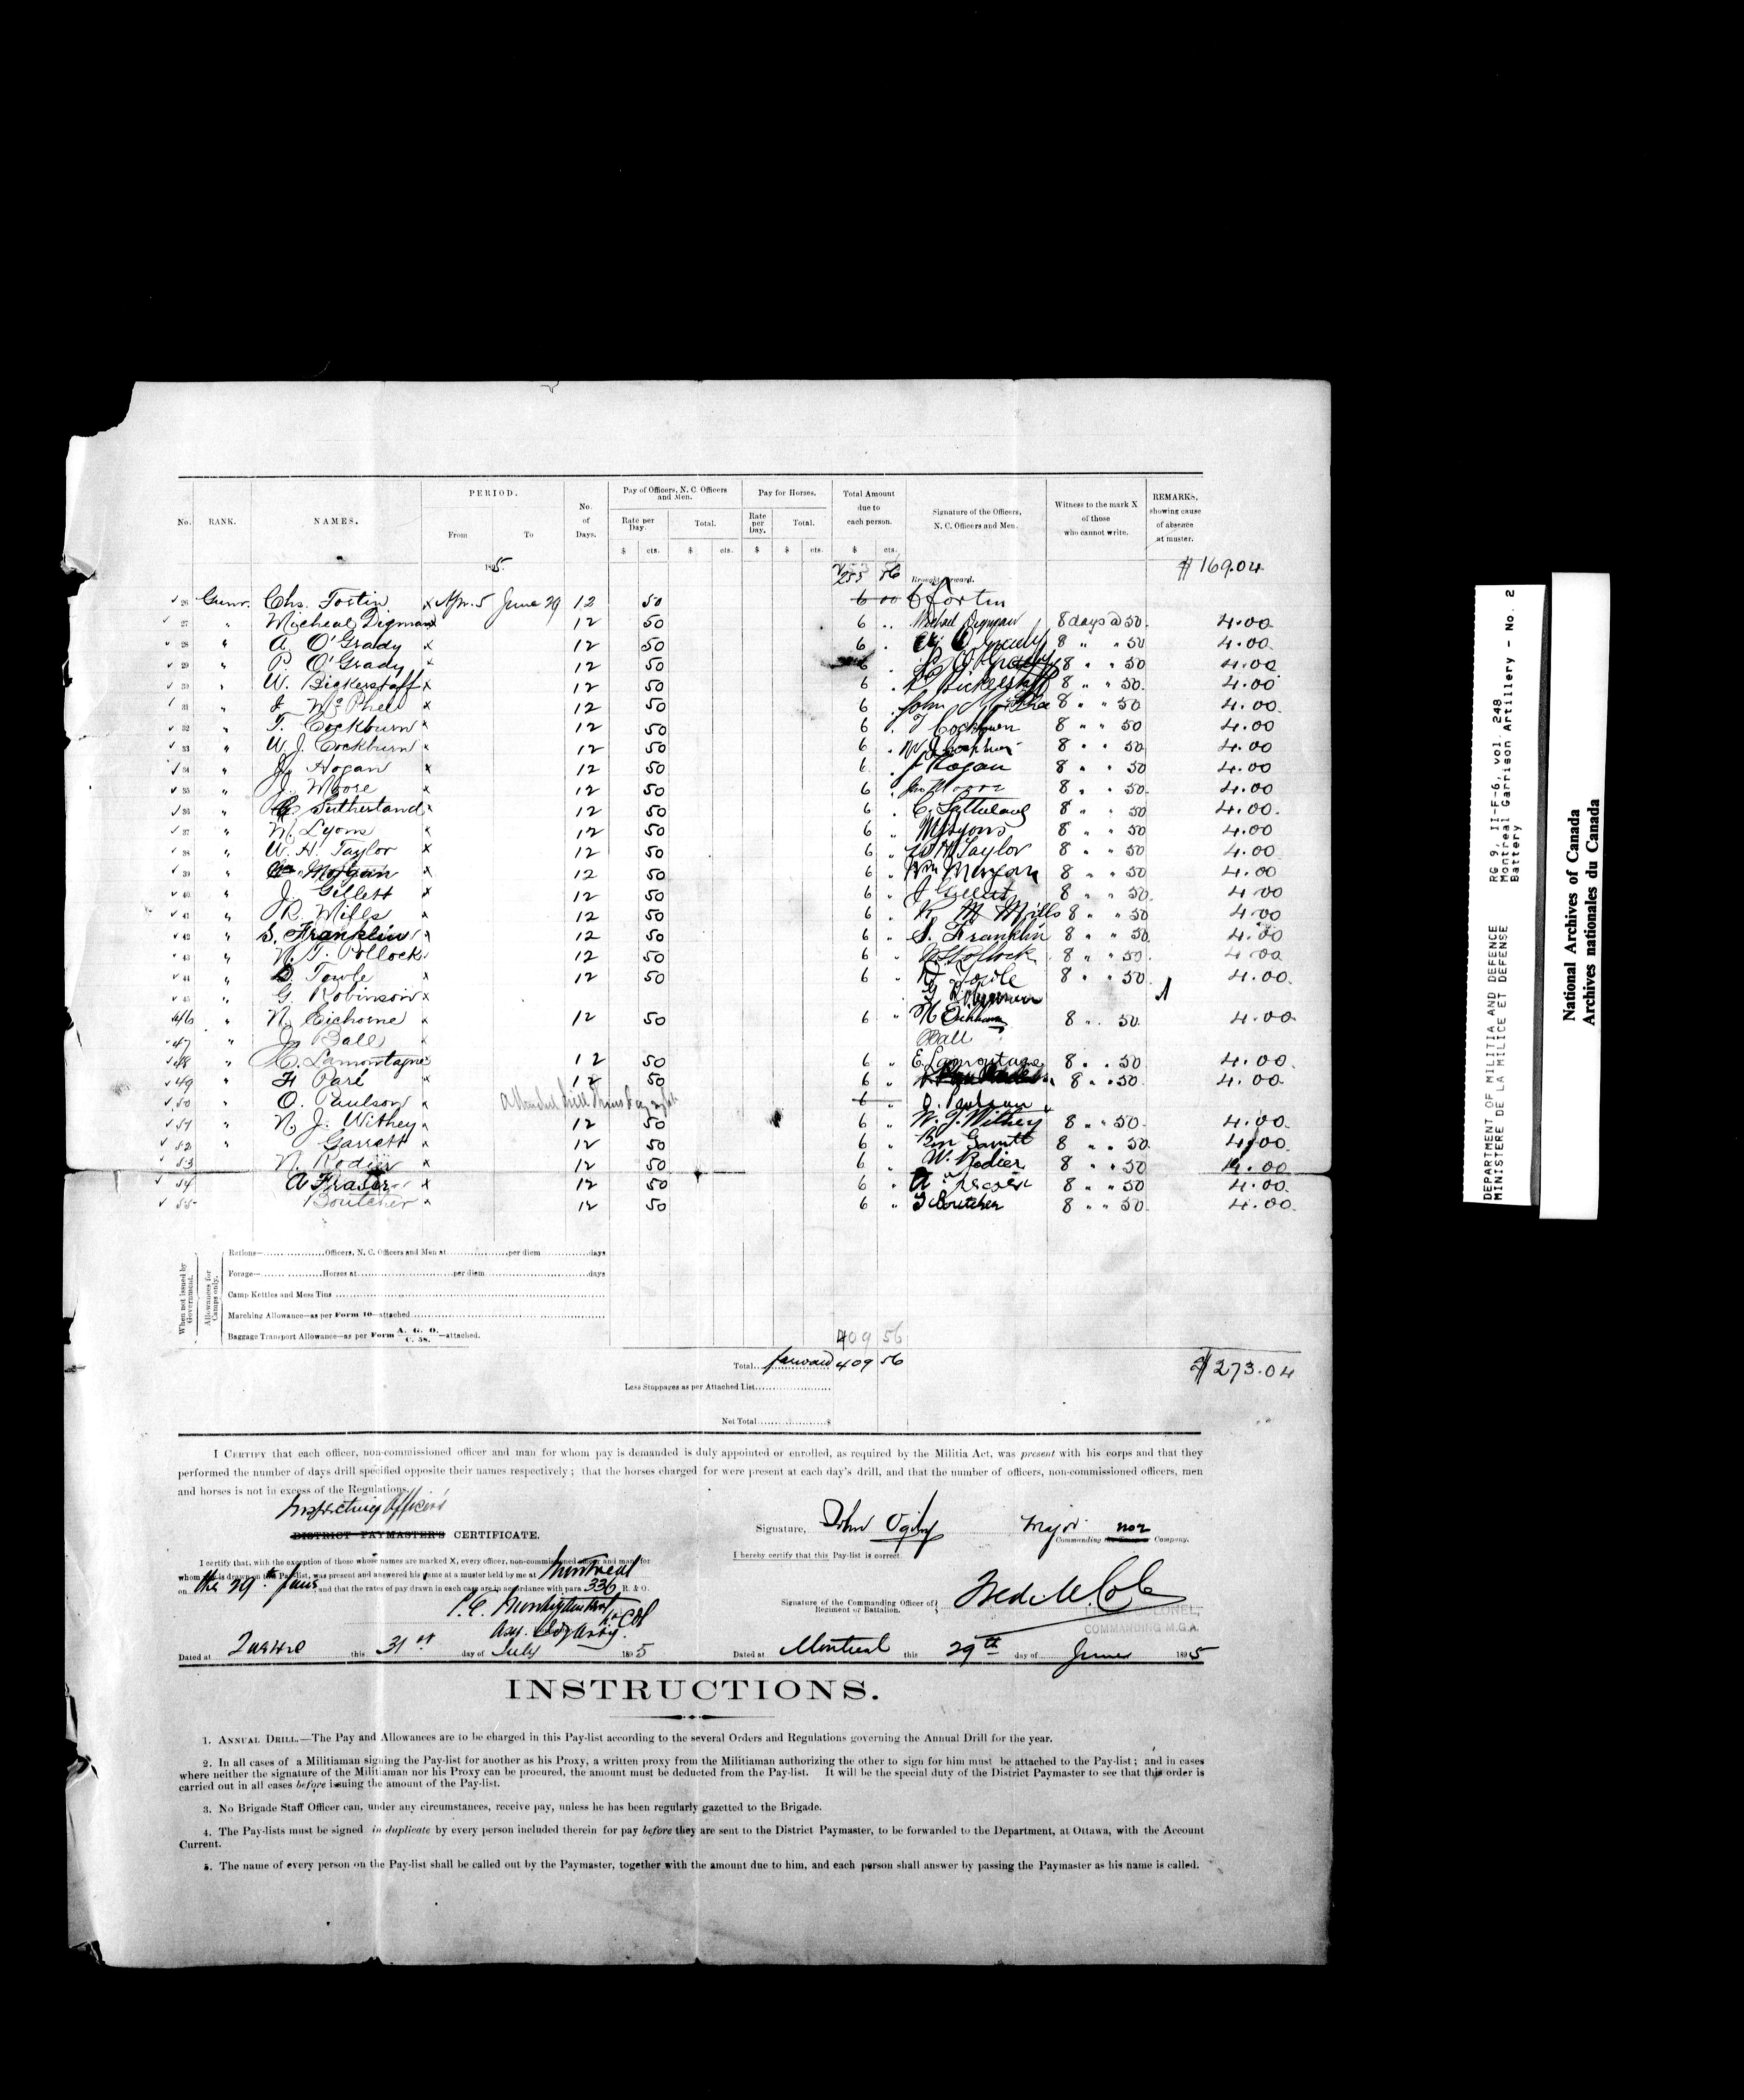 No. RANK. NAMES. PERIOD. From To No. of Days. Pay of Officers, N. C. Officers and Men. Rate per Day. $ cts. Total. $ cts. Pay for Horses. Rate per Day. $ Total. $ cts. Total Amount due to each person. $ cts. Signature of the Officers, N. C. Officers and Men. Witness to the mark X of those who cannot write. REMARKS, showing cause of absence at muster.
1895. 255 56 Brought forward. $169.04
26 Gunr. Chs. Fortin x Apr. 5 June 29 12 50 6 00 C Fortin
27 " Micheal Digman x 12 50 6 " Michael Digman 8 days @ 50. 4.00
28 " A. O'Grady x 12 50 6 " 8 " " 50 4.00
29 " P. O'Grady x 12 50 6 " 8 " " 50 4.00
30 " W. Bickerstaff x 12 50 6 " Bickerstaff 8 " " 50. 4.00
31 " J. McPhee x 12 50 6 " John McPhee 8 " " 50 4.00.
32 " T. Cockburn x 12 50 6 " T Cockburn 8 " " 50 4.00
33 " W. J. Cockburn x 12 50 6 " W J Cockburn 8 " " 50. 4.00
34 " J. Hogan x 12 50 6 " J Hogan 8 " " 50 4.00
35 " J. Moore x 12 50 6 " Moore 8 " " 50. 4.00
36 " C. Sutherland x 12 50 6 " C. Sutherland 8 " " 50 4.00.
37 " M. Lyons x 12 50 6 " M Lyons 8 " " 50 4.00
38 " W. H. Taylor x 12 50 6 " W H Taylor 8 " " 50 4.00
39 " Wm Morgan 12 50 6 " Wm Morgan 8 " " 50. 4.00
40 " J. Gillett x 12 50 6 " J Gillett 8 " " 50. 4 00
41 " R. Mills x 12 50 6 " R. M Mills 8 " " 50 4 00
42 " S. Franklin x 12 50 6 " S. Franklin 8 " " 50. 4.00
43 " N. T. Pollock 12 50 6 " Pollock 8 " " 50. 4 00
44 " D. Towle x 12 50 6 " D. Towle 8 " " 50 4.00.
45 " G. Robinson x G Robinson A
46 " N. Eichorne x 12 50 6 " N Eichorne 8 " " 50. 4.00
47 " J. Ball x Ball
48 " E. Lamontagne 12 50 6 " E. Lamontagne 8 " " 50 4.00.
49 " H Parl x 12 50 6 " 8 " " 50. 4.00
50 " O. Paulson x 6 O. Paulson
51 " N. J. Withey x 12 50 6 " N. J. Withey 8 " " 50. 4.00.
52 " Garrett x 12 50 6 " Garrett 8 " " 50. 4.00.
53 N. Rodier x 12 50 6 " W. Rodier 8 " " 50 4.00
54 A Fraser x 12 50 6 " A Fraser 8 " " 50 4.00.
55 Boutcher x 12 50 6 " Boutcher 8 " " 50. 4.00.
When not issued by Government.
Allowances for Camps only.
Rations— Officers, N. C. Officers and Men at per diem days
Forage— Horses at per diem days
Camp Kettles and Mess Tins
Marching Allowance—as per Form 10—attached
Baggage Transport Allowance—as per Form A. G. O. C. 38. —attached.
409 56
Total forward 409 56 $273.04
Less Stoppages as per Attached List
Net Total $
I CERTIFY that each officer, non-commissioned officer and man for whom pay is demanded is duly appointed or enrolled, as required by the Militia Act, was present with his corps and that they
performed the number of days drill specified opposite their names respectively; that the horses charged for were present at each day's drill, and that the number of officers, non-commissioned officers, men
and horses is not in excess of the Regulations.
Inspecting Officer's
DISTRICT PAYMASTER'S CERTIFICATE.
I certify that, with the exception of those whose names are marked X, every officer, non-commissioned officer and man for
whom pay is drawn on this Pay-list, was present and answered his name at a muster held by me at Montreal
on the 29th June and that the rates of pay drawn in each case are in accordance with para 336 R. & O.
Lt Col
Dated at this 31st day of July 1895
Signature, John Ogilvy Major Commanding No 2 Company.
I hereby certify that this Pay-list is correct.
Signature of the Commanding Officer of Regiment or Battalion.
COLONEL,
COMMANDING M.G.A.
Dated at Montreal this 29th day of June 1895
INSTRUCTIONS.
1. ANNUAL DRILL.—The Pay and Allowances are to be charged in this Pay-list according to the several Orders and Regulations governing the Annual Drill for the year.
2. In all cases of a Militiaman signing the Pay-list for another as his Proxy, a written proxy from the Militiaman authorizing the other to sign for him must be attached to the Pay-list; and in cases
where neither the signature of the Militiaman nor his Proxy can be procured, the amount must be deducted from the Pay-list. It will be the special duty of the District Paymaster to see that this order is
carried out in all cases before issuing the amount of the Pay-list.
3. No Brigade Staff Officer can, under any circumstances, receive pay, unless he has been regularly gazetted to the Brigade.
4. The Pay-lists must be signed in duplicate by every person included therein for pay before they are sent to the District Paymaster, to be forwarded to the Department, at Ottawa, with the Account
Current.
5. The name of every person on the Pay-list shall be called out by the Paymaster, together with the amount due to him, and each person shall answer by passing the Paymaster as his name is called.
DEPARTMENT OF MILITIA AND DEFENCE
MINISTERE DE LA MILICE ET DEFENSE
RG 9, II-F-6, vol. 248
Montreal Garrison Artillery - No. 2
Battery
National Archives of Canada
Archives nationales du Canada